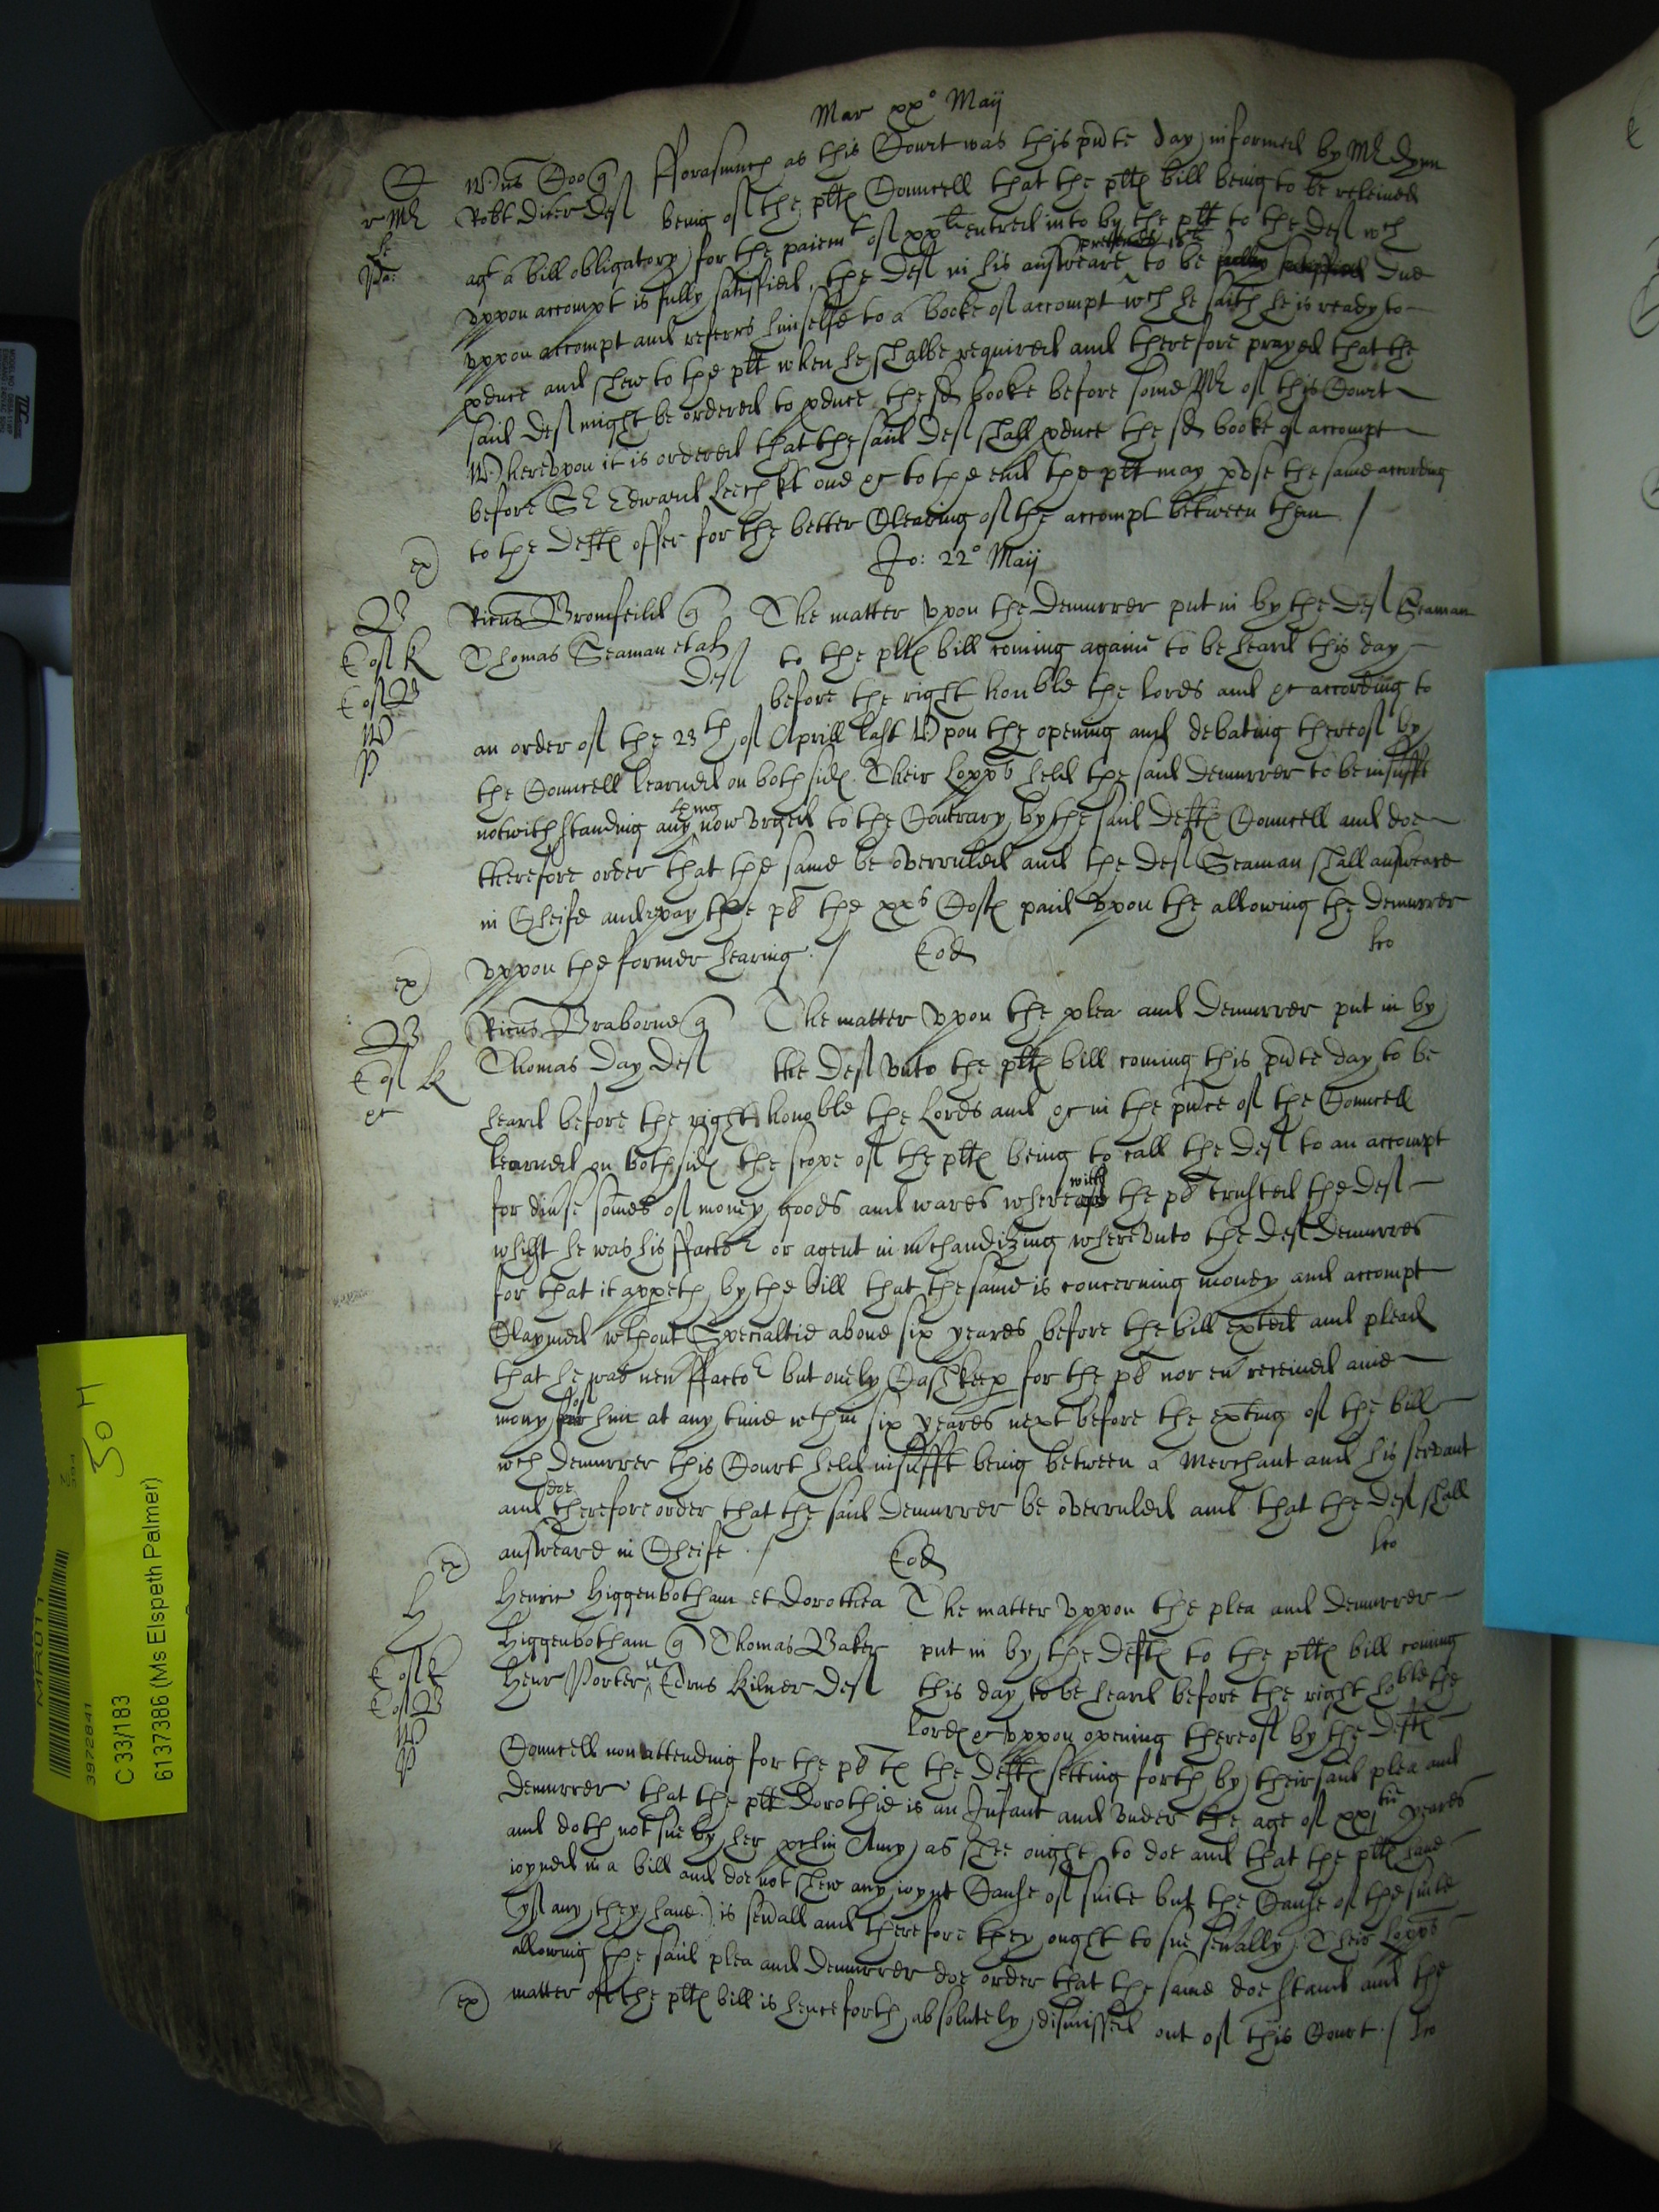 Mar xx° Maij
Willms Coo q Fforasmuch as this Court was this pnte day informed by Mr
Robt Dicer def being of the pltes Councell that the pltes bill being to be releived
agt a bill obligatory for the paiemt of xxli entred into by the plt to the def wch
uppon accompt is fully satisfied, the def in his answeare pretends it to be due
uppon accompt and referrs himselfe to a booke of accompt wch he saith he is ready to
pduce and shew to the plt when he shalbe required and therefore prayed that the
said def might be ordered to pduce the sd booke before some Mr of this Court
Whereupon it is ordered that the said def shall pduce the sd booke of accompt
before Sr Edward Leech kt one &c to the end the plt may pvse the same according
to the deftes offer for the better Clearing of the accompt between them /
Jo: 22° Maij
Ricus Bromfeild q The matter upon the demurrer put in by the def Seaman
Thomas Seaman et al to the pltes bill coming againe to be heard this day
def before the right honble the lords and &c according to
an order of the 23th of Aprill last Upon the opening and debating thereof by
the Councell learned on both sides. Their Lopps held the said demurrer to be insufft
notwithstanding any thing now urged to the Contrary by the said deftes Councell and doe
therefore order that the same be overruled and the def Seaman shall answeare
in Cheife and repay the pl the xxs Costes paid upon the allowing the demurrer
uppon the former hearing. / Eod
Ricus Braborne q The matter upon the plea and demurrer put in by
Thomas Day def the def unto the pltes bill coming this pnte day to be
heard before the right honoble the Lords and &c in the pnce of the Councell
learned on both sides the scope of the pltes being to call the def to an accompt
for diuse somes of money goods and wares where with the pl trusted the def
whilst he was his ffactor or agent in mchandizing whereunto the def demurres
for that it appeth by the bill that the same is concerning money and accompt
Claymed wthout Specialtie above six yeares before the bill exted and plead
that he was neu ffactor but onely Cashkeep for the pl nor eu received anie
mony of him at any time wthin six yeares next before the exting of the bill
wch demurrer this Court held insufft being between a Merchant and his servant
and doe therefore order that the said demurrer be overruled and that the def shall
answeare in Cheife / Eod
Henric Higgenbotham et Dorothea The matter uppon the plea and demurrer
Higgenbotham q Thomas Baker put in by the deftes to the pltes bill coming
Henr Porter et Edrus Kilner def this day to be heard before the right hoble the
lordes &c uppon opening thereof by the deftes
Councell non attending for the pl the deftes setting forth by their said plea and
demurrer that the plt Dorothie is an Infant and under the age of xxjtie yeares
and doth not sue by her pchin Amy as shee ought to doe and that the pltes have
ioyned in a bill and doe not shew any ioynt Cause of suite but the Cause of the suite
(yf any they have) is seuall and therefore they ought to sue seually. Their Lopps
allowing the said plea and demurrer doe order that the same doe stand and the
matter of the pltes bill is henceforth absolutely dismissed out of this Court. /
MR011
3972841
C 33/183
6137386 (Ms Elspeth Palmer)
30 H